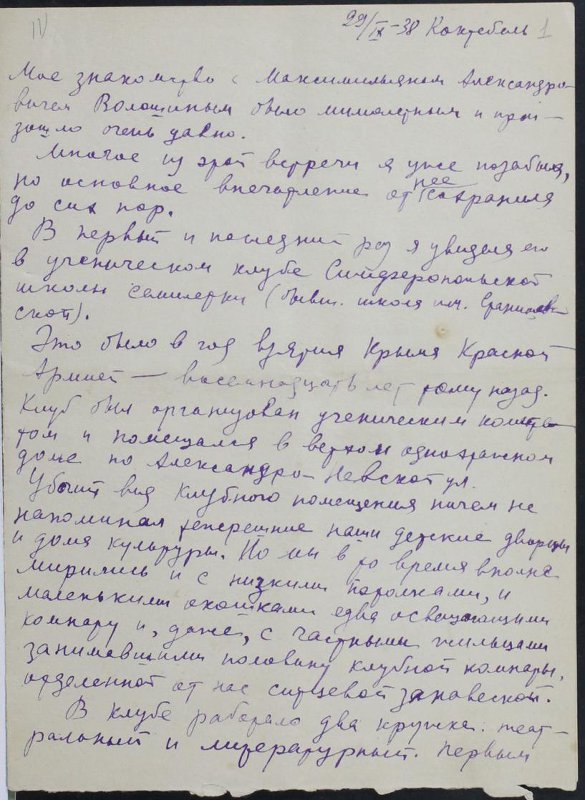 IV
29/IX-38 Коктебель 1
Мое знакомство с Максимильяном Александро-
вичем Волошиным было мимолетным и прои-
зошло очень давно.
Многое из этой встречи я уже позабыла,
но основное впечатление от нее сохранила
до сих пор.
В первый и последний раз я увидела его
в ученическом клубе Симферопольской
школы семилетки (бывш. школа им.
ской).
Это было в год взятия Крыма Красной
Армией — восемнадцать лет тому назад.
Клуб был организован ученическим комите-
том и помещался в ветхом одноэтажном
доме по Александро-Невской ул.
Убогий вид клубного помещения ничем не
напоминал теперешние наши детские дворцы
и дома культуры. Но мы в то время вполне
мирились и с низкими потолками, и
маленькими окошками едва освещающими
комнату и, даже, с частными жильцами
занимавшими половину клубной комнаты,
отделенной от нас ситцевой занавеской.
В клубе работало два кружка: теат-
ральный и литературный. Первым